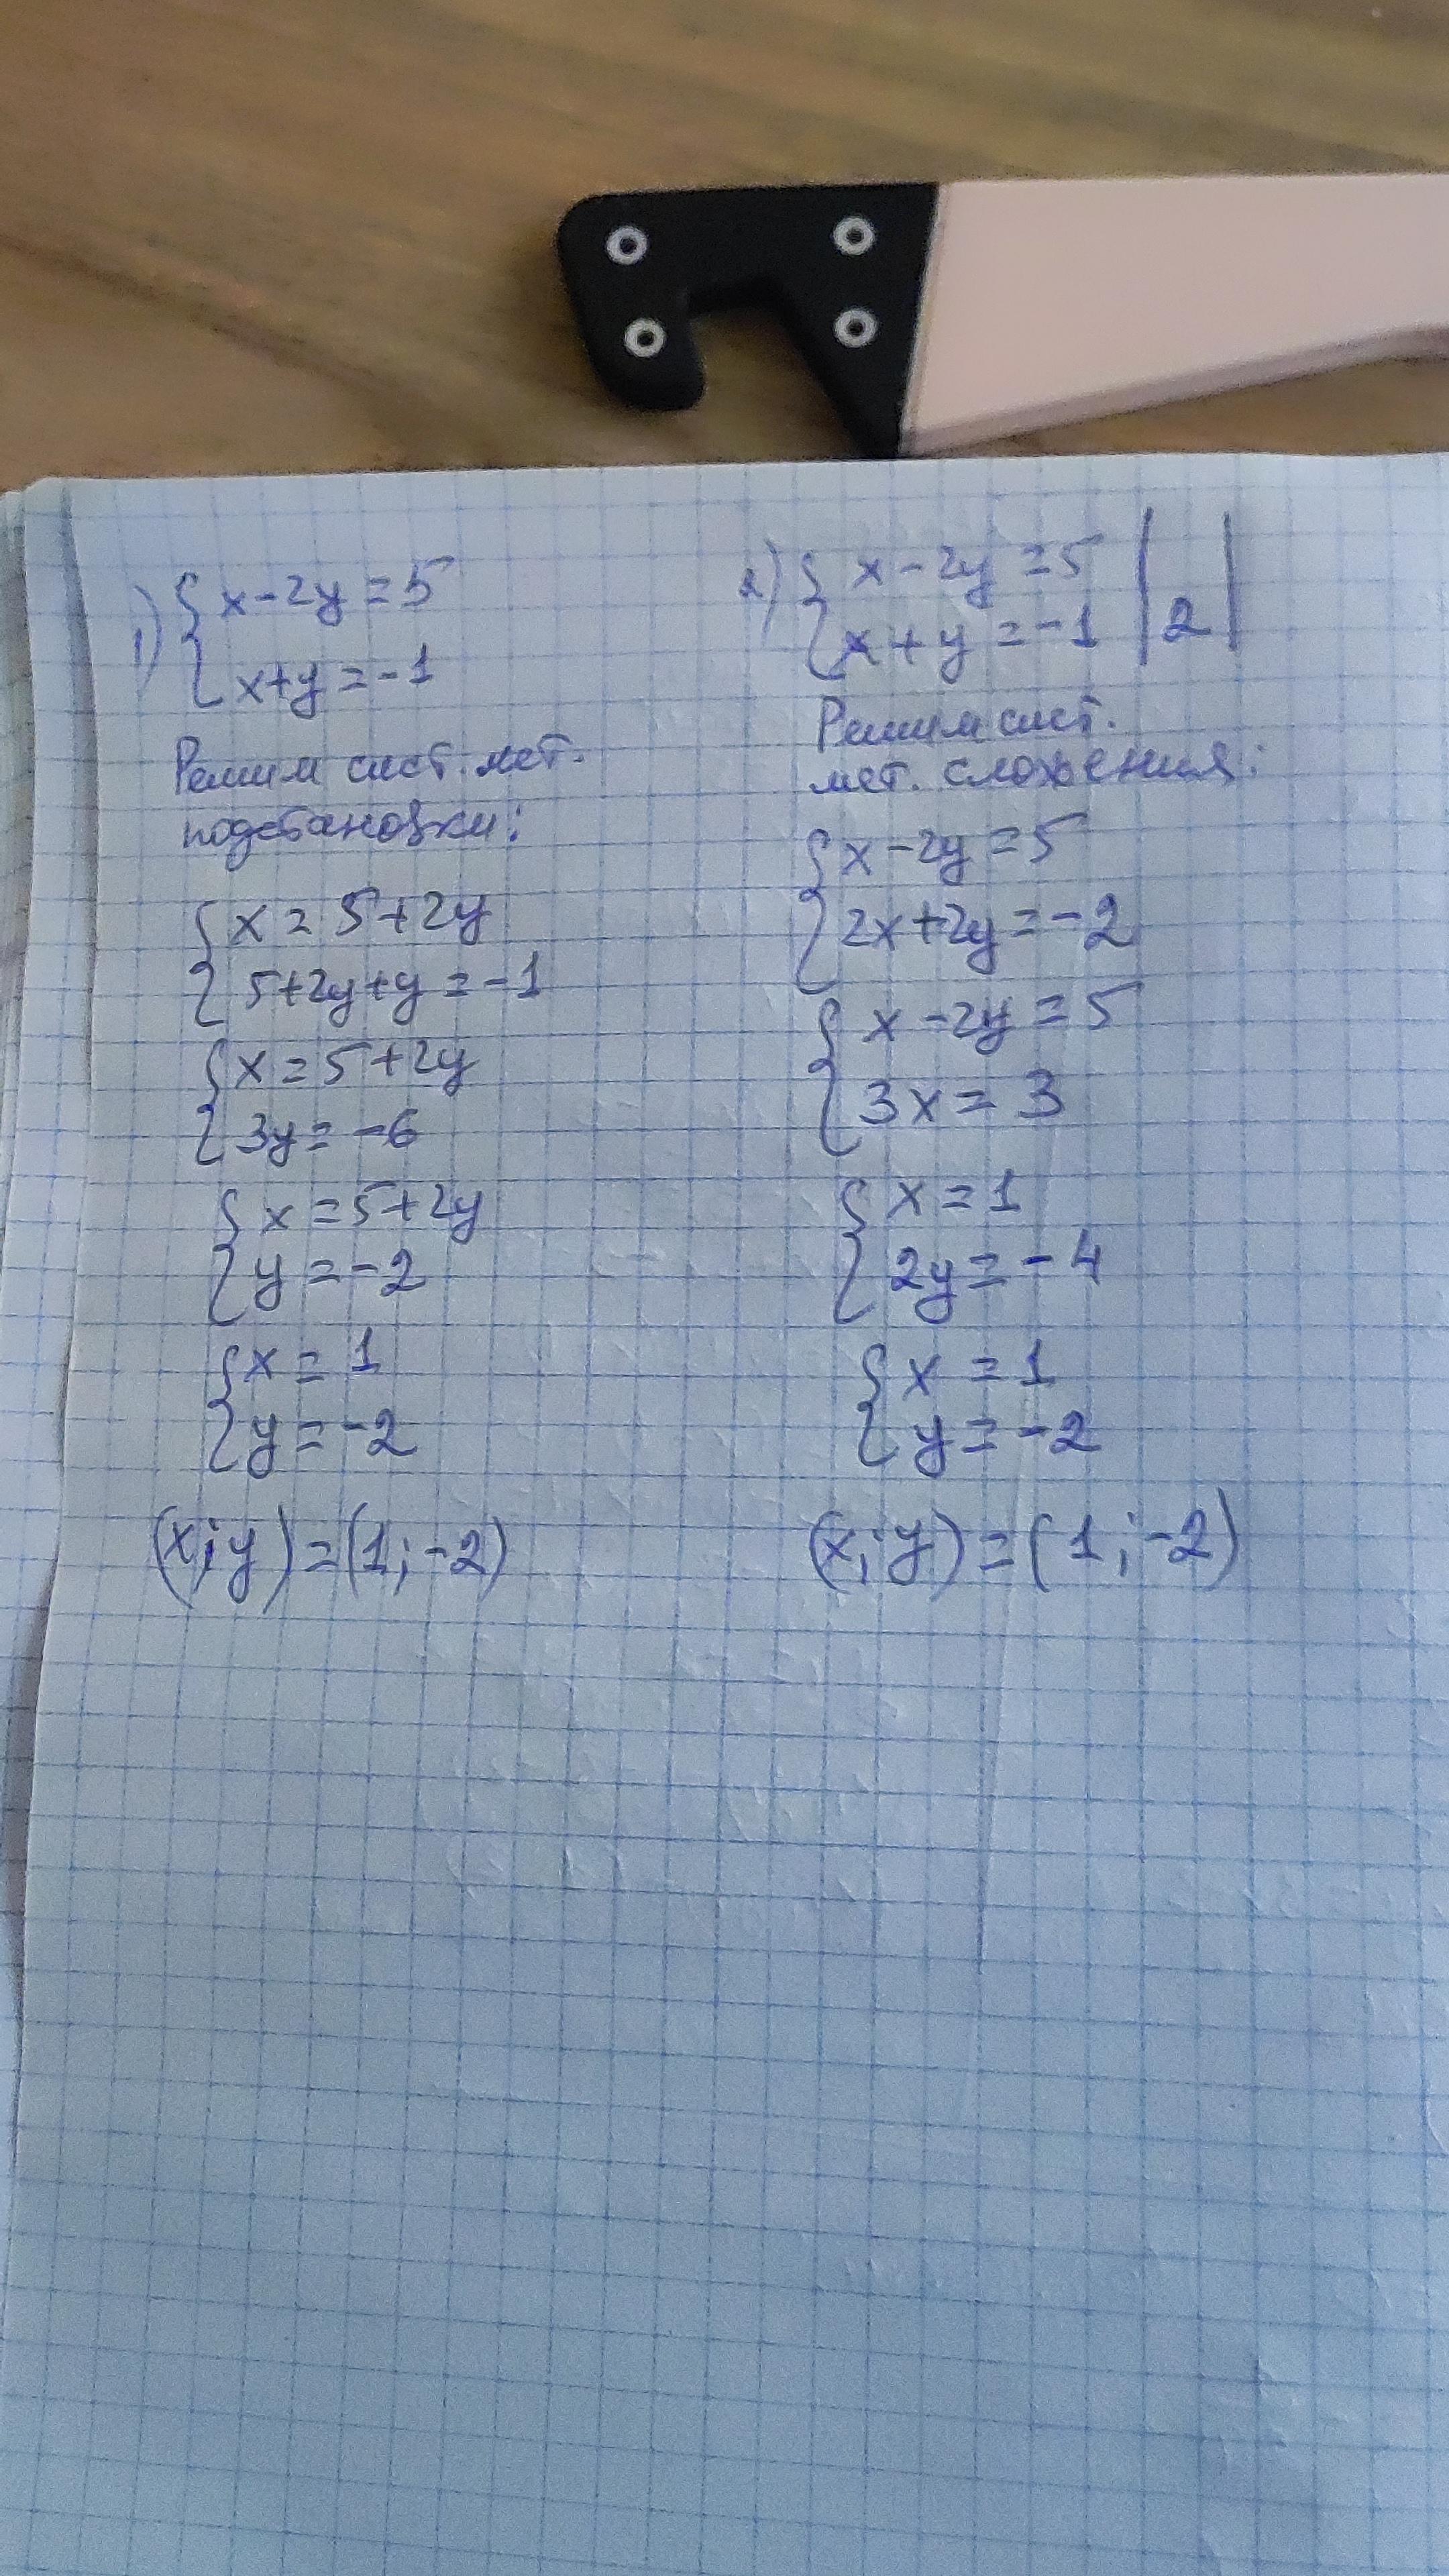 1) { x-2y=5
x+y=-1
Решим сист. мет.
подстановки:
{ x=5+2y
5+2y+y=-1
{ x=5+2y
3y=-6
{ x=5+2y
y=-2
{ x=1
y=-2
(x;y)=(1;-2)
2) { x-2y=5
x+y=-1 | 2 |
Решим сист.
мет. сложения:
{ x-2y=5
2x+2y=-2
{ x-2y=5
3x=3
{ x=1
2y=-4
{ x=1
y=-2
(x;y)=(1;-2)